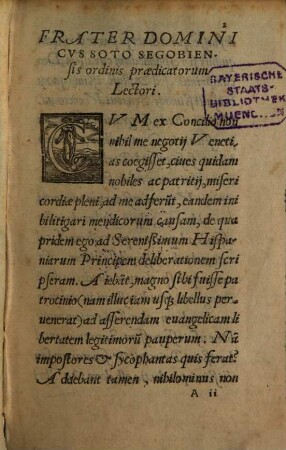 2
FRATER DOMINI
CVS SOTO SEGOBIEN-
sis ordinis prædicatorum
Lectori.
BAYERISCHE
STAATS-
BIBLIOTHEK
MUENCHEN
CVM ex Concilio non
nihil me negotij Veneti,
as coegisset, ciues quidam
nobiles ac patritij, miseri
cordiæ pleni, ad me adferūt, eandem ini
bi litigari mendicorum causam, de qua
pridem ego ad Serenißimum Hispa
niarum Principem deliberationem scri
pseram. Aiebāt, magno sibi fuisse pa
trocinio (nam illuc iam usq; libellus per
uenerat) ad asserendam euangelicam li
bertatem legitimorū pauperum. Nā
impostores & sycophantas quis ferat?
Addebant tamen, nihilominus non
A ii